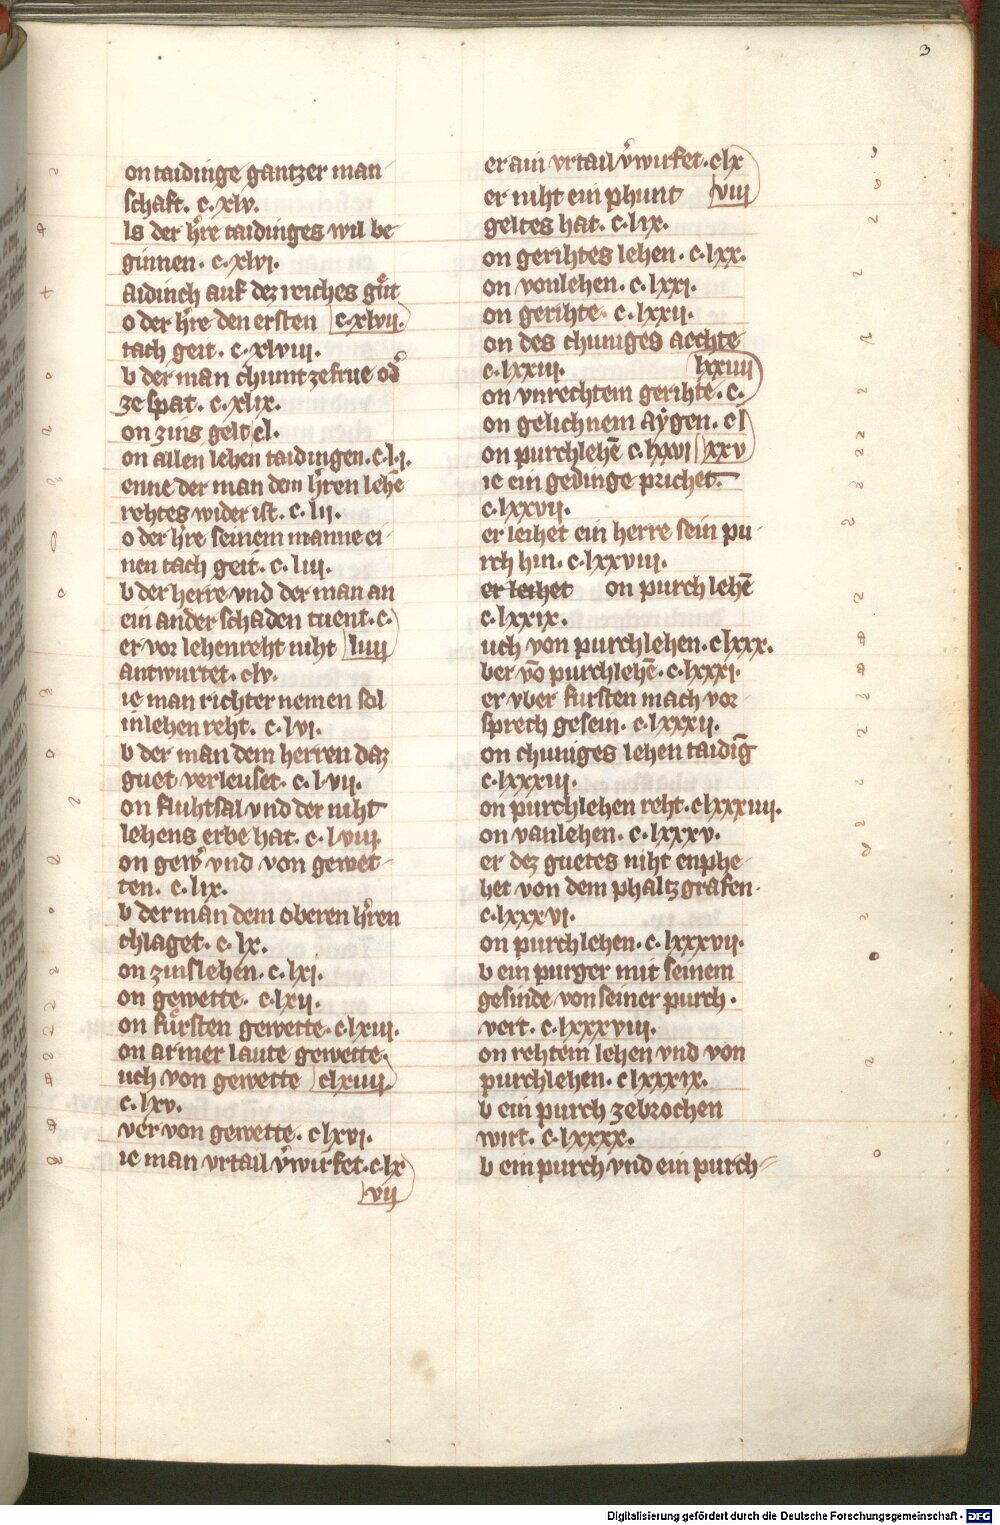 3
on taidinge gantzer man-
schaft. c. xlv.
ls der hʳre taidinges wil be-
ginnen. c. xlvi.
aidinch auf dez reiches gůt
o der hʳre den ersten c. xlvii.
tach geit. c. xlviii.
b der man chumt ze frue odʳ
ze spat. c. xlix.
on zins gelt cl.
on allen lehen taidingen. c. l.i.
enne der man dem hʳren lehe
rehtes wider ist. c. lii.
o der hʳre seinem manne ei-
nen tach geit. c. liii.
b der herre vnd der man an
ein ander schaden tuent. c.
er vor lehenreht niht liiii
antwurtet. clv.
ie man richter nemen sol
in lehen reht. c. lvi.
b der man dem herren daz
guet verleuset. c. lvii.
on fluhtsal vnd der niht
lehens erbe hat. c. lviii.
on gewʳ vnd von gewet-
ten. c. lix.
b der man dem oberen hʳren
chlaget. c. lx.
on zinslehen. c. lxi.
on gewette. c. lxii.
on fůrsten gewette. c. lxiii.
on armer laute gewette.
uch von gewette clxiiii.
c. lxv.
ver von gewette. c lxvi.
ie man vrtail vʳwirfet. c lx
vii
er ain vrtail vʳwirfet. clx
er niht ein phunt viii
geltes hat. c. lix.
on gerihtes lehen. c. lxx.
on vonlehen. c. lxxi.
on gerihte. c. lxxii.
on des chuniges aechte
c. lxxiii. lxxiiii
on vnrechtem gerihte. c.
on gelichnem aÿgen. c l
on purchlehē c. lxxvi xxv
ie ein gedinge prichet.
c. lxxvii.
er leihet ein herre sein pu-
rch hin. c. lxxviii.
er leihet on purch lehē
c. lxxix.
uch von purchlehen. c lxxx.
ber vō purchlehē. c. lxxxi.
er vber fursten mach vor-
sprech gesein. c. lxxxii.
on chuniges lehen taidīg
c. lxxxiii.
on purchlehen reht. c lxxxiiii.
on vanlehen. c. lxxxv.
er dez guetes niht enphe-
het von dem phaltzgrafen.
c. lxxxvi.
on purchlehen. c. lxxxvii.
b ein purger mit seinem
gesinde von seiner purch.
vert. c. lxxxviii.
on rehtem lehen vnd von
purchlehen. c lxxxix.
b ein purch zebrochen
wirt. c. lxxxx.
b ein purch vnd ein purch-
Digitalisierung gefördert durch die Deutsche Forschungsgemeinschaft - DFG